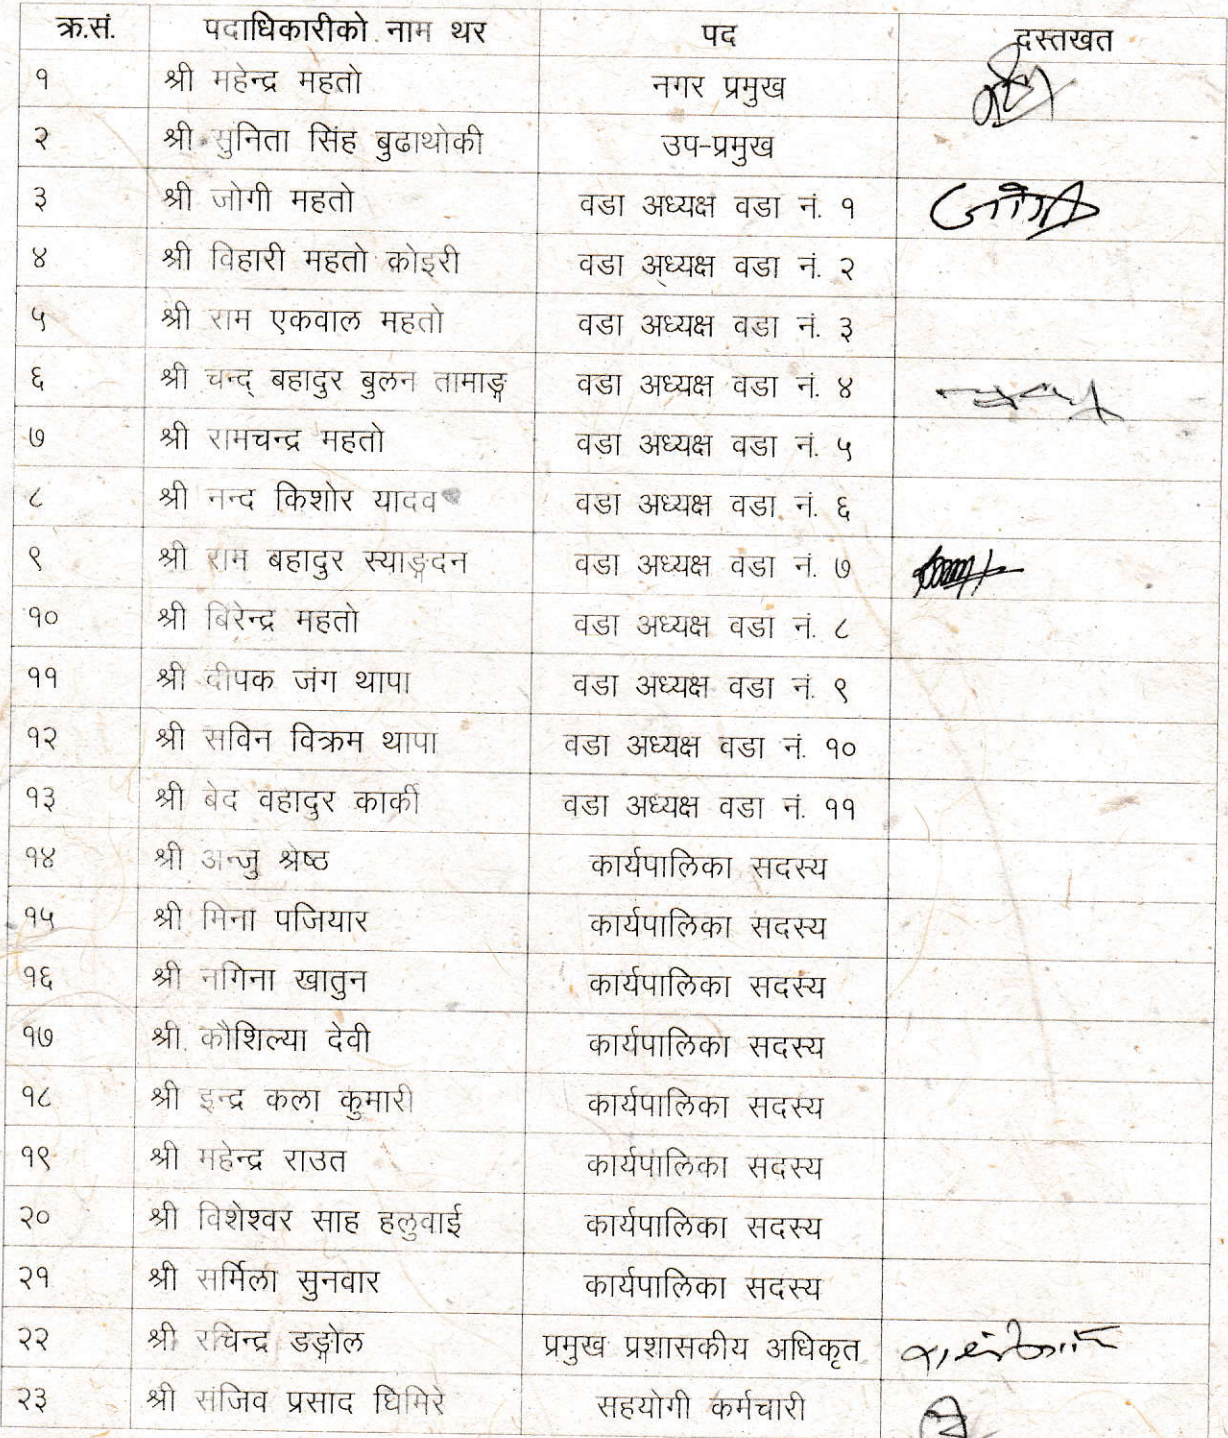 क्र.सं. पदाधिकारीको नाम थर पद दस्तखत
१ श्री महेन्द्र महतो नगर प्रमुख
२ श्री सुनिता सिंह बुढाथोकी उप-प्रमुख
३ श्री जोगी महतो वडा अध्यक्ष वडा नं. १
४ श्री विहारी महतो कोइरी वडा अध्यक्ष वडा नं. २
५ श्री राम एकवाल महतो वडा अध्यक्ष वडा नं. ३
६ श्री चन्द् बहादुर बुलन तामाङ्ग वडा अध्यक्ष वडा नं. ४
७ श्री रामचन्द्र महतो वडा अध्यक्ष वडा नं. ५
८ श्री नन्द किशोर यादव वडा अध्यक्ष वडा नं. ६
९ श्री राम बहादुर स्याङ्गदन वडा अध्यक्ष वडा नं. ७
१० श्री बिरेन्द्र महतो वडा अध्यक्ष वडा नं. ८
११ श्री दीपक जंग थापा वडा अध्यक्ष वडा नं. ९
१२ श्री सविन विक्रम थापा वडा अध्यक्ष वडा नं. १०
१३ श्री बेद वहादुर कार्की वडा अध्यक्ष वडा नं. ११
१४ श्री अन्जु श्रेष्ठ कार्यपालिका सदस्य
१५ श्री मिना पजियार कार्यपालिका सदस्य
१६ श्री नगिना खातुन कार्यपालिका सदस्य
१७ श्री कौशिल्या देवी कार्यपालिका सदस्य
१८ श्री इन्द्र कला कुमारी कार्यपालिका सदस्य
१९ श्री महेन्द्र राउत कार्यपालिका सदस्य
२० श्री विशेश्वर साह हलुवाई कार्यपालिका सदस्य
२१ श्री सर्मिला सुनवार कार्यपालिका सदस्य
२२ श्री रचिन्द्र डङ्गोल प्रमुख प्रशासकीय अधिकृत
२३ श्री संजिव प्रसाद घिमिरे सहयोगी कर्मचारी